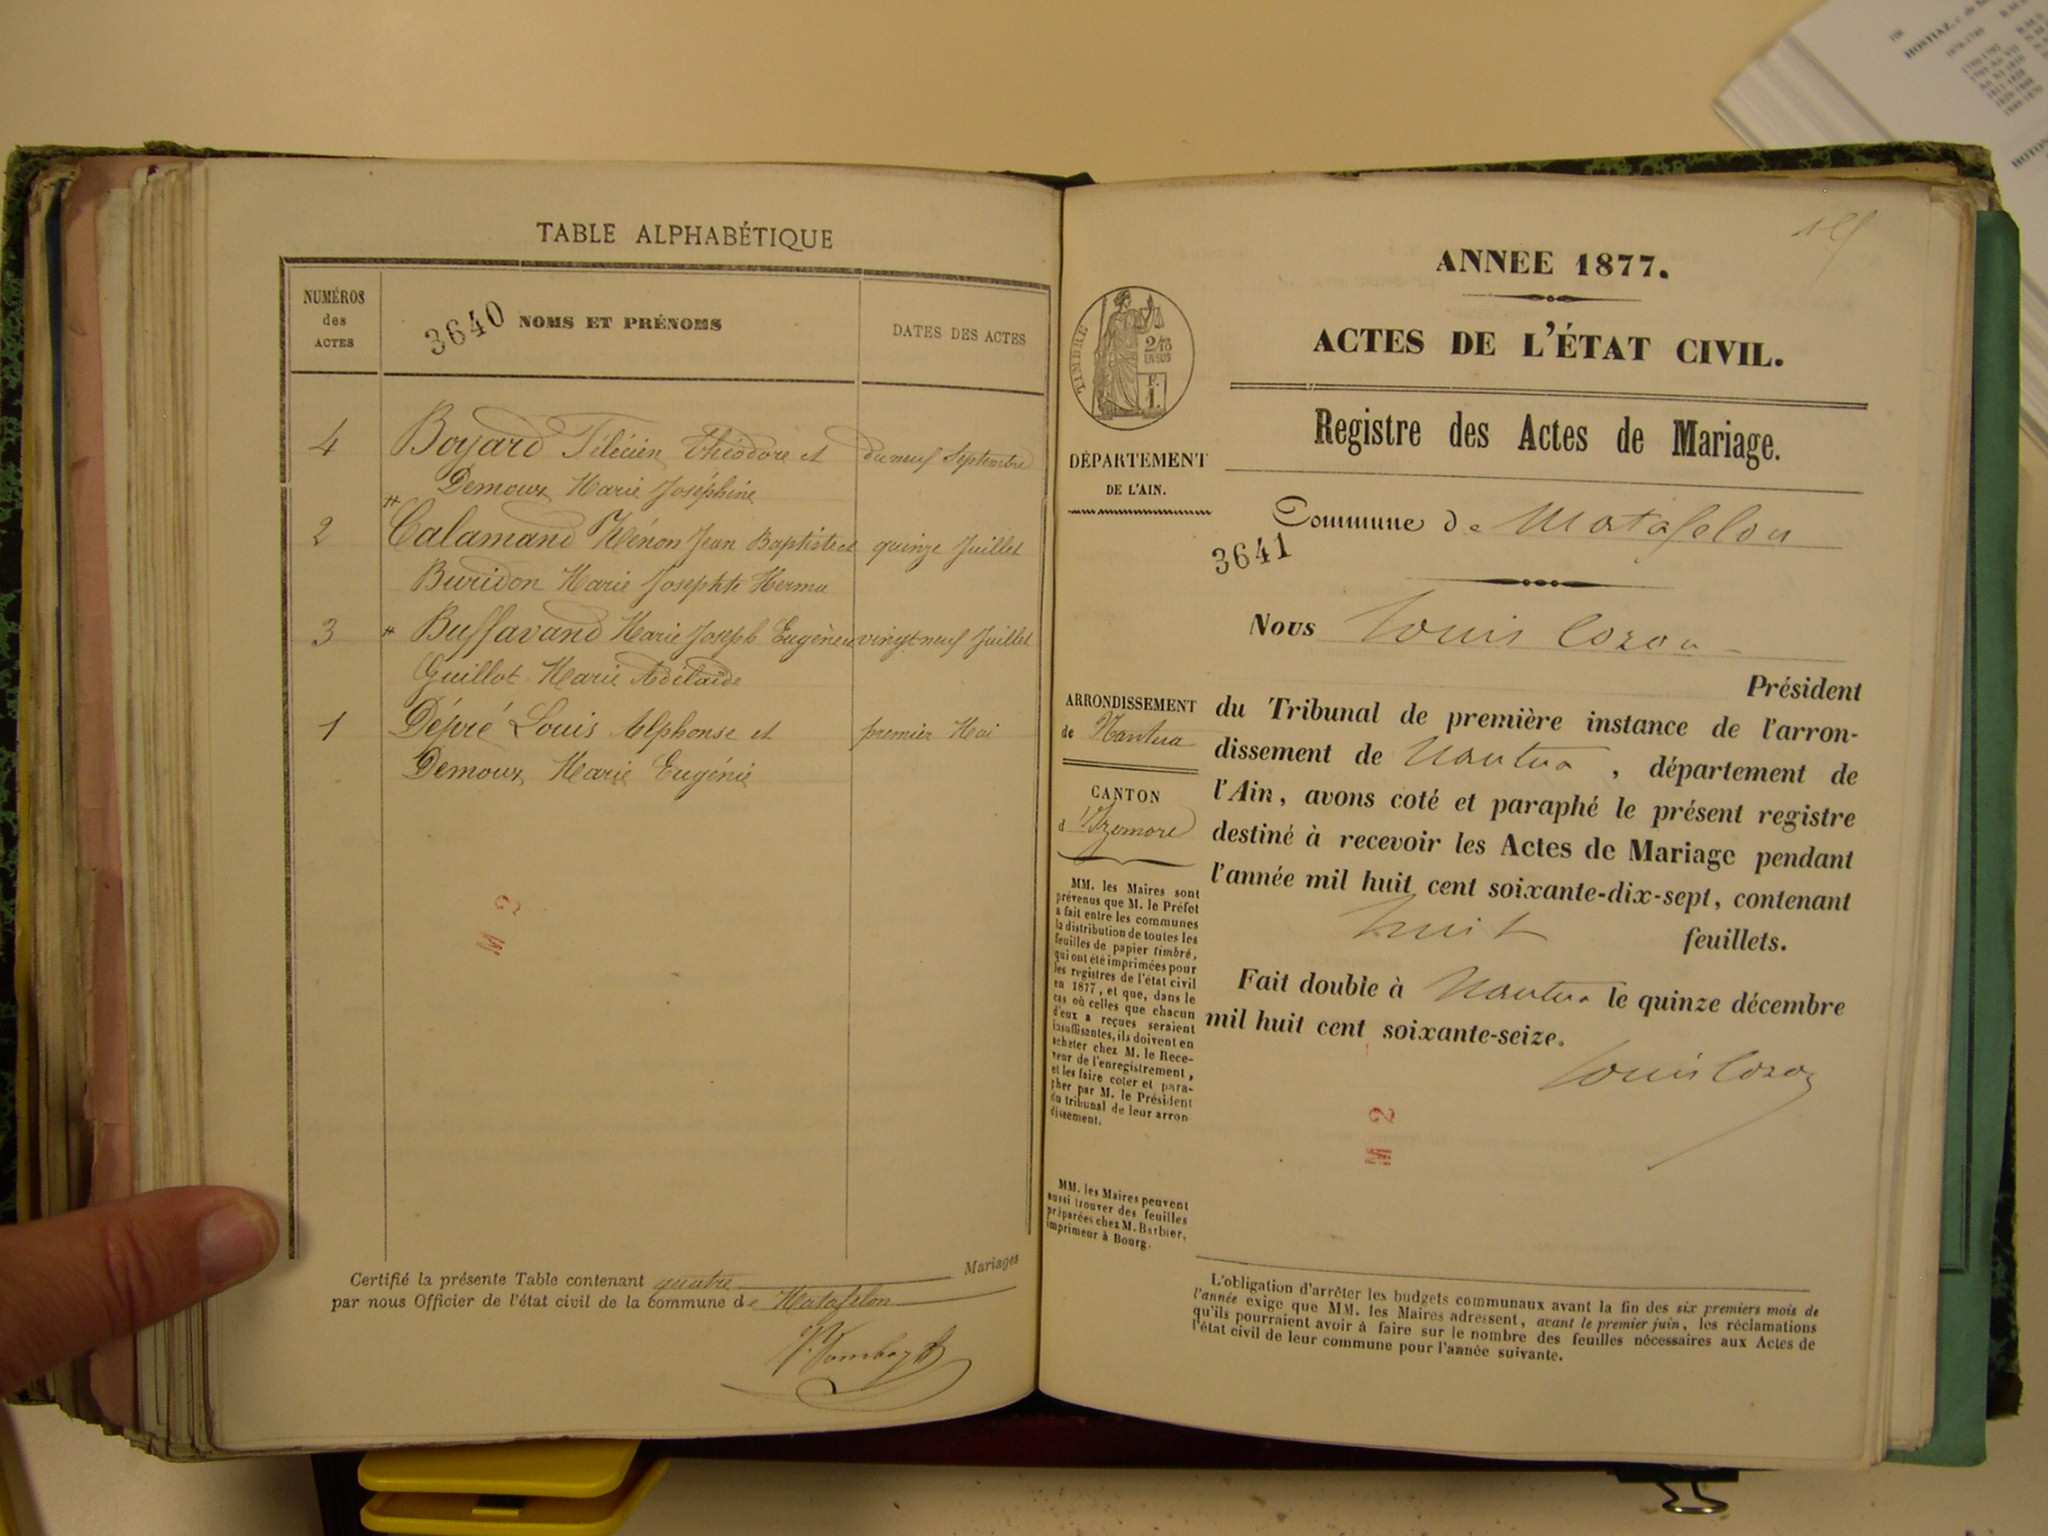 TABLE ALPHABÉTIQUE
NUMÉROS
des
ACTES
3640 NOMS ET PRÉNOMS
DATES DES ACTES
4 Boyard Théodore et dix neuf Septembre
Demoux Marie Joséphine
2 Calamand Jean Baptiste et quinze Juillet
Buridon Marie
3 Buffavand Marie Joseph Eugène et vingt neuf Juillet
Guillot Marie Adélaïde
1 Dépré Louis Alphonse et premier Mai
Demoux Marie Eugénie
M 2
Certifié la présente Table contenant quatre Mariages
par nous Officier de l'état civil de la commune de Matafelon
ANNEE 1877.
ACTES DE L'ÉTAT CIVIL.
Registre des Actes de Mariage.
TIMBRE
2/10
EN SUS
F.
1.
DÉPARTEMENT
DE L'AIN.
Commune de Matafelon
3641
Nous Louis Cozon
Président
ARRONDISSEMENT
de Nantua
CANTON
d'Izernore
du Tribunal de première instance de l'arron-
dissement de Nantua, département de
l'Ain, avons coté et paraphé le présent registre
destiné à recevoir les Actes de Mariage pendant
l'année mil huit cent soixante-dix-sept, contenant
huit feuillets.
Fait double à Nantua le quinze décembre
mil huit cent soixante-seize.
Louis Cozon
M 2
MM. les Maires sont
prévenus que M. le Préfet
a fait entre les communes
la distribution de toutes les
feuilles de papier timbré,
qui ont été imprimées pour
les registres de l'état civil
en 1877, et que, dans le
cas où celles que chacun
d'eux a reçues seraient
insuffisantes, ils doivent en
acheter chez M. le Rece-
veur de l'enregistrement,
et les faire coter et para-
pher par M. le Président
du tribunal de leur arron
dissement.
MM. les Maires peuvent
aussi trouver des feuilles
préparées chez M. Barbier,
imprimeur à Bourg.
L'obligation d'arrêter les budgets communaux avant la fin des six premiers mois de
l'année exige que MM. les Maires adressent, avant le premier juin, les réclamations
qu'ils pourraient avoir à faire sur le nombre des feuilles nécessaires aux Actes de
l'état civil de leur commune pour l'année suivante.